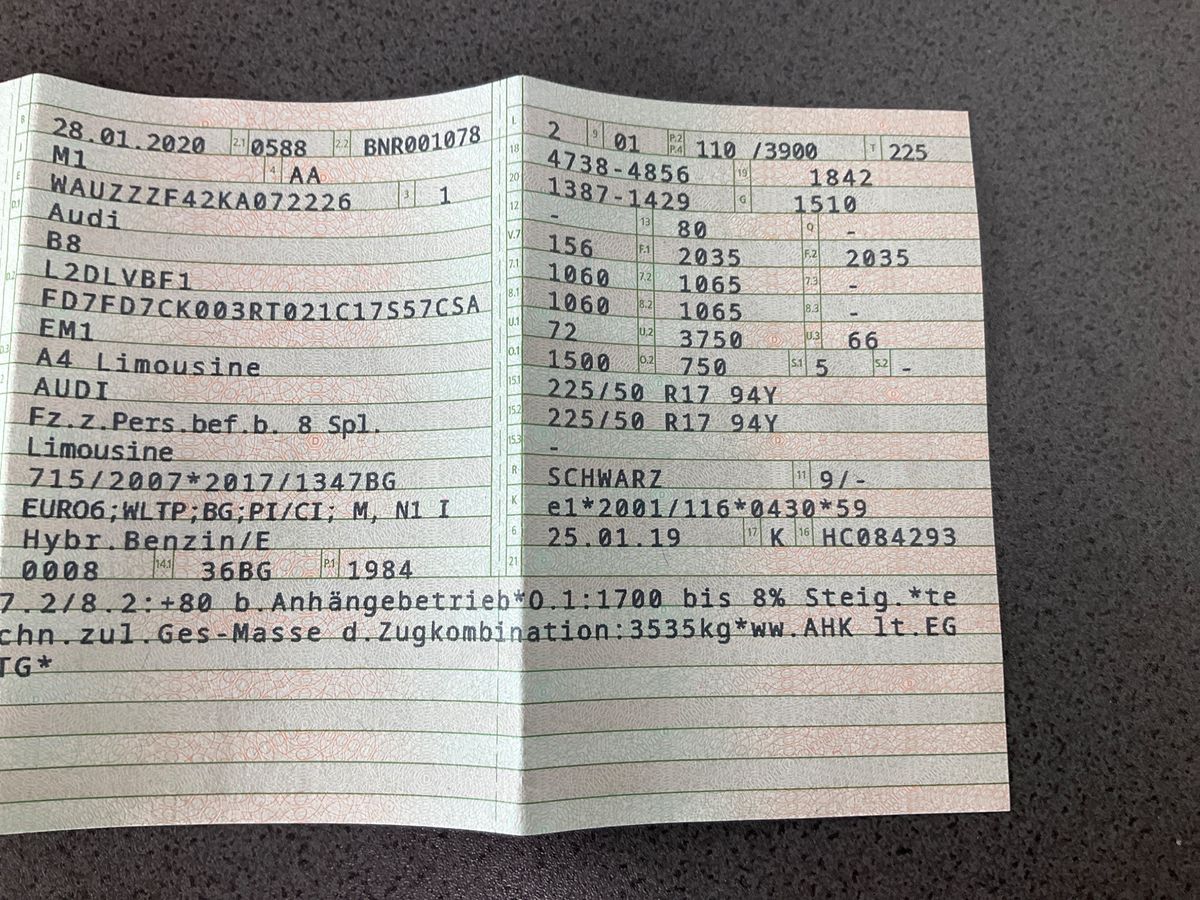 B 28.01.2020 2.1 0588 2.2 BNR001078
J M1 4 AA
E WAUZZZF42KA072226 3 1
D.1 Audi
B8
D.2 L2DLVBF1
FD7FD7CK003RT021C17S57CSA
FM1
D.3 A4 Limousine
2 AUDI
Fz.z.Pers.bef.b. 8 Spl.
Limousine
715/2007*2017/1347BG
EURO6;WLTP;BG;PI/CI; M, N1 I
Hybr.Benzin/E
0008 14.1 36BG P.1 1984
L 2 9 01 P.2 P.4 110 /3900 T 225
18 4738-4856 19 1842
20 1387-1429 G 1510
12 - 13 80 Q -
V.7 156 F.1 2035 F.2 2035
7.1 1060 7.2 1065 7.3 -
8.1 1060 8.2 1065 8.3 -
U.1 72 U.2 3750 U.3 66
O.1 1500 O.2 750 S.1 5 S.2 -
15.1 225/50 R17 94Y
15.2 225/50 R17 94Y
15.3 -
R SCHWARZ 11 9/-
K e1*2001/116*0430*59
6 25.01.19 17 K 16 HC084293
21
7.2/8.2:+80 b.Anhängebetrieb*O.1:1700 bis 8% Steig.*te
chn.zul.Ges-Masse d.Zugkombination:3535kg*ww.AHK lt.EG
TG*